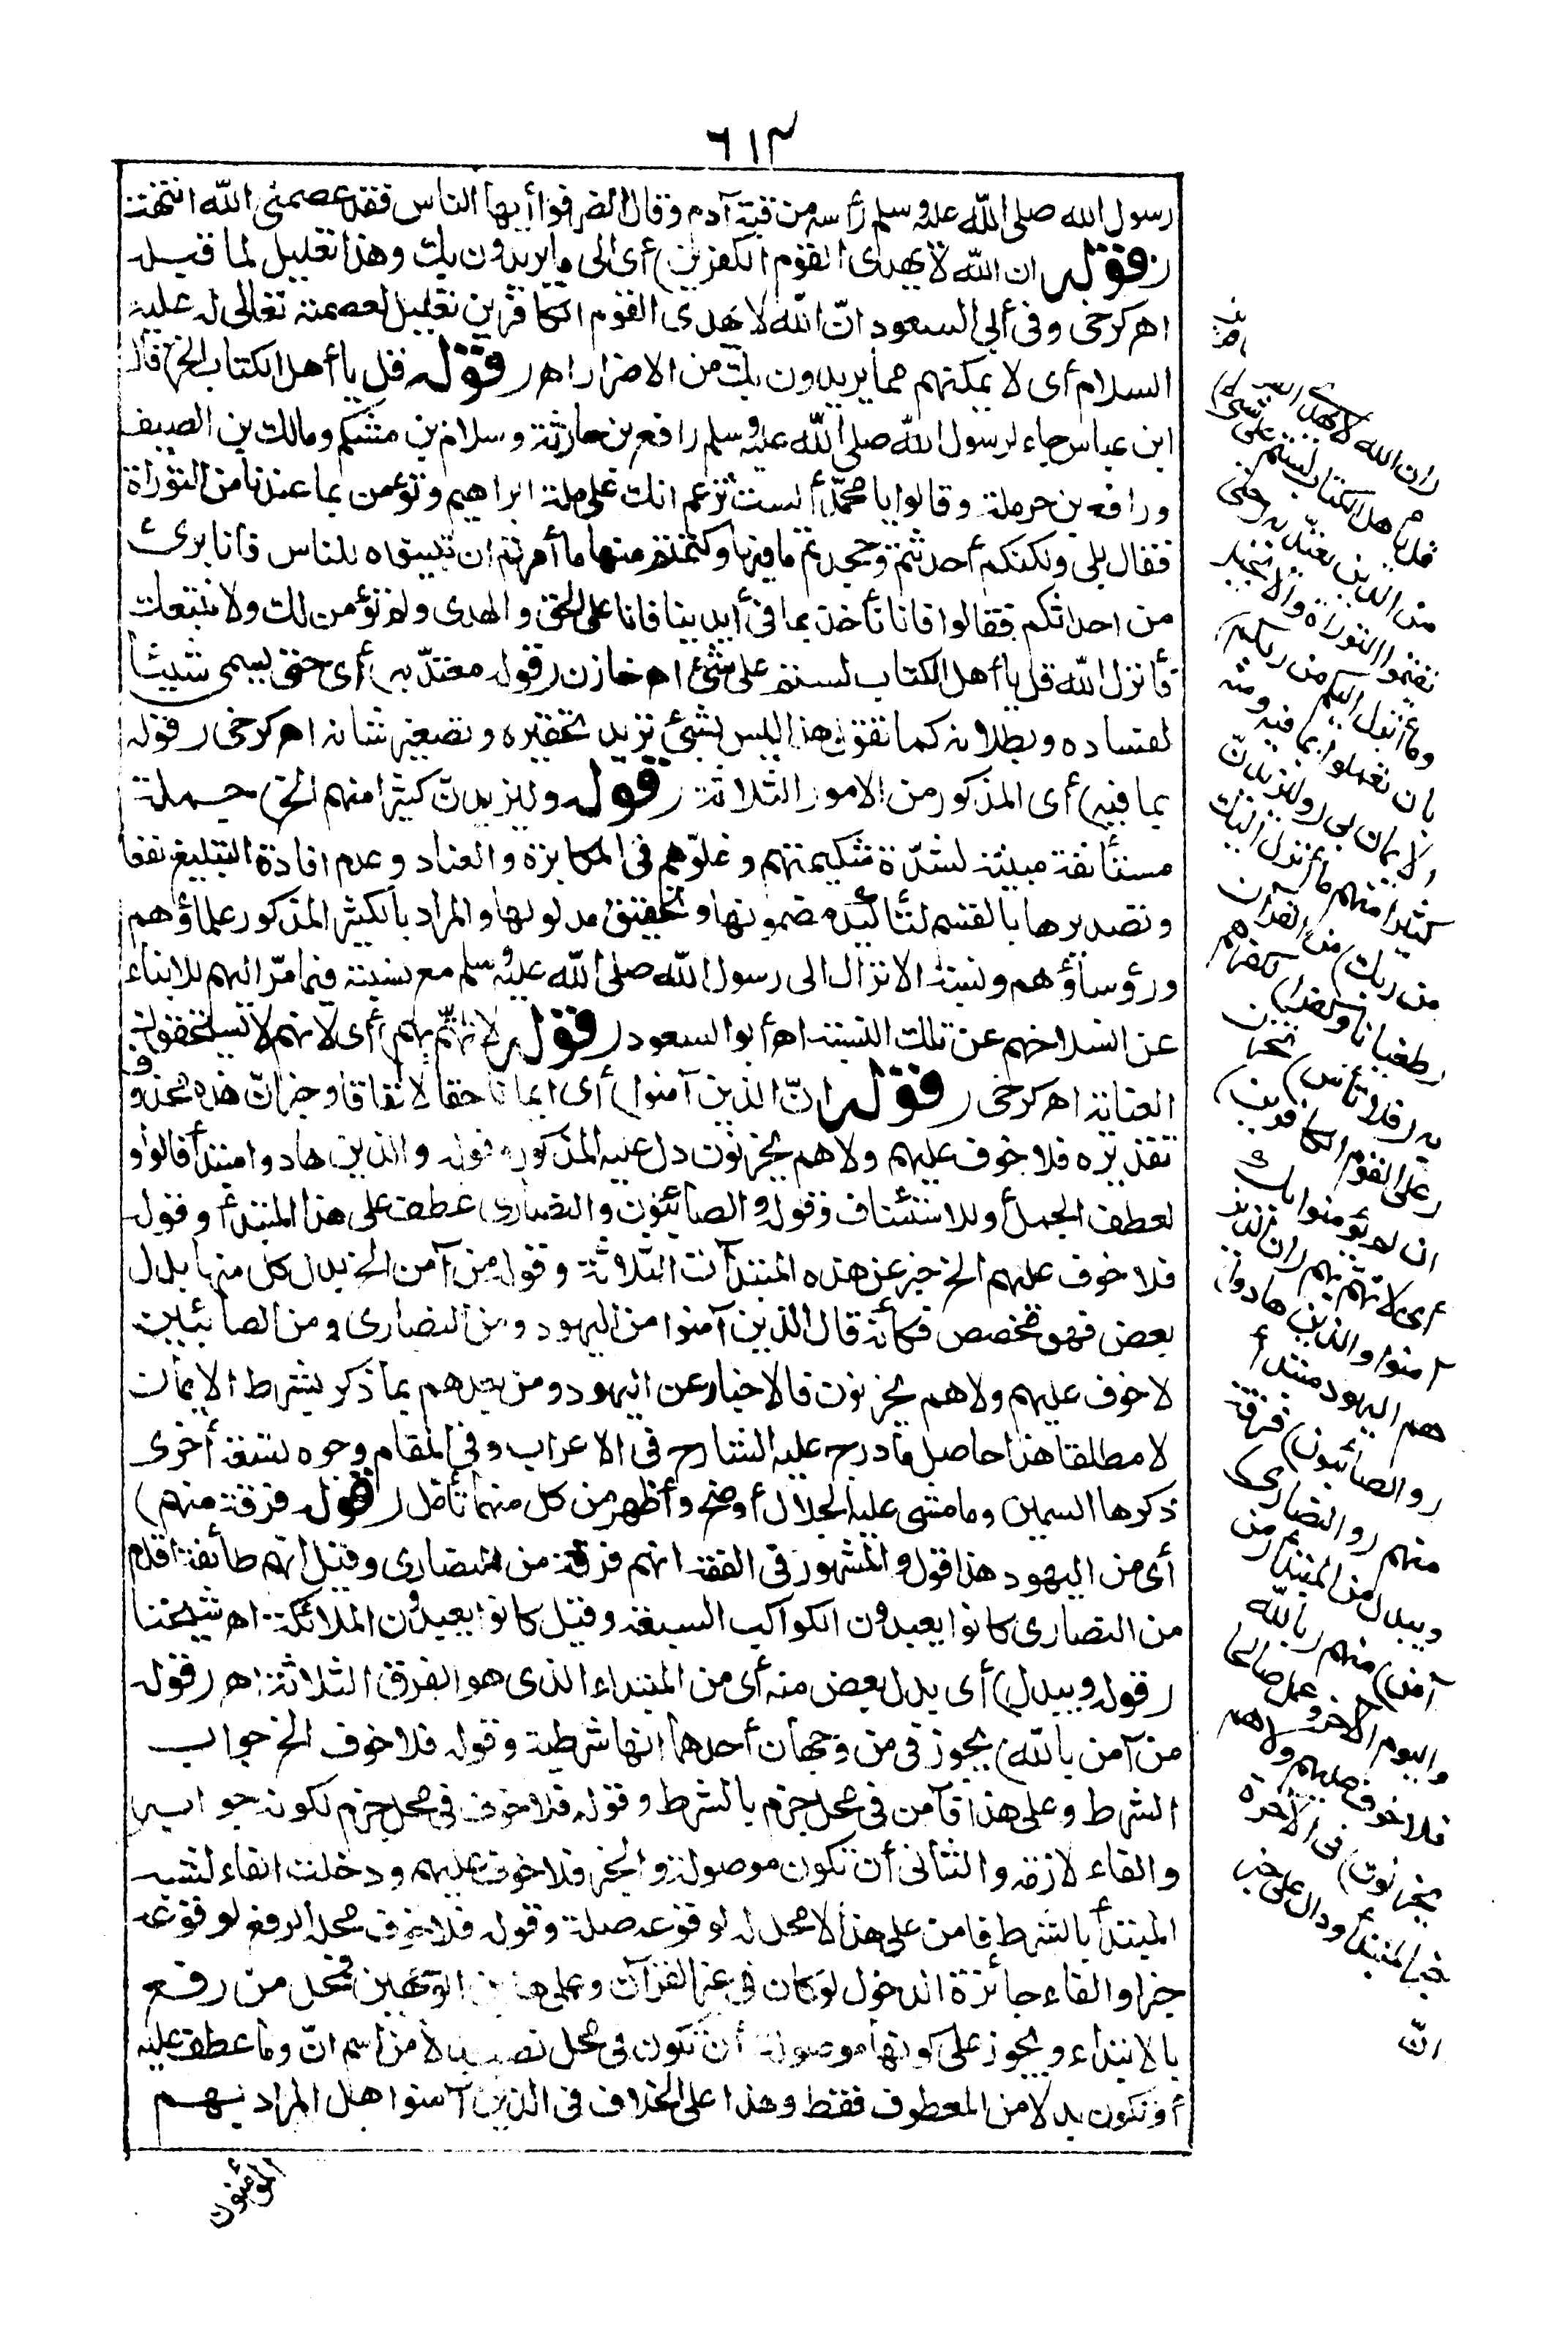 ٦١٣
رسول الله صلى الله عليه وسلم رأسه من قبة آدم وقال انصرفوا أيها الناس فقد عصمنى الله انتهت
(قوله ان الله لا يهدى القوم الكفرين) أى الى ما يريدون بك وهذا تعليل لما قبله
اهـ كرخى وفى أبى السعود انّ الله لا يهدى القوم الكافرين تعليل لعصمته تعالى له عليه
السلام أى لا يمكنهم مما يريدون بك من الاضرار اهـ (قوله قل يا أهل الكتاب الخ) قال
ابن عباس جاء لرسول الله صلى الله عليه وسلم رافع بن حارثة وسلام بن مشكم ومالك بن الصيف
ورافع بن حرملة وقالوا يا محمد ألست تزعم انك على ملة ابراهيم وتؤمن بما عندنا من التوراة
فقال بلى ولكنكم أحدثتم وجحدتم ما فيها وكتمتم منها ما أمرتم ان تبينوه للناس فأنا برىء
من احداثكم فقالوا فانا نأخذ بما فى أيدينا فانا على الحق والهدى ولا نؤمن لك ولا نتبعك
فأنزل الله قل يا أهل الكتاب لستم على شئ اهـ خازن (قوله معتدّ به) أى حتى يسمى شيئا
لفساده وبطلانه كما تقول هذا ليس بشئ تريد تحقيره وتصغير شانه اهـ كرخى (قوله
بما فيه) أى المذكور من الامور الثلاثة (قوله وليزيدنّ كثيرا منهم الخ) جملة
مستأنفة مبينة لشدّة شكيمتهم وغلوّهم فى المكابرة والعناد وعدم افادة التبليغ نفعا
وتصديرها بالقسم لتأكيد مضمونها وتحقيق مدلولها والمراد بالكثير المذكور علماؤهم
ورؤساؤهم ونسبة الانزال الى رسول الله صلى الله عليه وسلم مع نسبته فيما مرّ اليهم للانباء
عن انسلاخهم عن تلك النسبة اهـ أبو السعود (قوله لا تهتم بهم) أى لانهم لا يستحقون
العناية اهـ كرخى (قوله انّ الذين آمنوا) أى ايمانا حقا لا نفاقا وخبر انّ هذه محذوف
تقديره فلا خوف عليهم ولا هم يحزنون دل عليه المذكور وقوله والذين هادوا مبتدأ فالواو
لعطف الجمل أو للاستئناف وقوله والصابئون والنصارى عطف على هذا المبتدأ وقوله
فلا خوف عليهم الخ خبر عن هذه المبتدآت الثلاثة وقوله من آمن الخ بدل كل منها بدل
بعض فهو مخصص فكأنه قال الذين آمنوا من اليهود ومن النصارى ومن الصابئين
لا خوف عليهم ولا هم يحزنون فالاخبار عن اليهود ومن بعدهم بما ذكر بشرط الايمان
لا مطلقا هذا حاصل ما درج عليه الشارح فى الاعراب وفى المقام وجوه تسعة أخرى
ذكرها السمين وما مشى عليه الجلال أوضح وأظهر من كل منها تأمل (قوله فرقة منهم)
أى من اليهود هذا قول والمشهور فى الفقه انهم فرقة من النصارى وقيل انهم طائفة أقدم
من النصارى كانوا يعبدون الكواكب السبعة وقيل كانوا يعبدون الملائكة اهـ شيخنا
(قوله ويبدل) أى بدل بعض منه أى من المبتداء الذى هو الفرق الثلاثة اهـ (قوله
من آمن بالله) يجوز فى من وجهان أحدهما انها شرطية وقوله فلا خوف الخ جواب
الشرط وعلى هذا فآمن فى محل جزم بالشرط وقوله فلا خوف فى محل جزم لكونه جوابه
والفاء لازمة والثانى أن تكون موصولة والخبر فلا خوف عليهم ودخلت الفاء لشبه
المبتدأ بالشرط فآمن على هذا لا محل له لوقوعه صلة وقوله فلا خوف محله الرفع لوقوعه
خبرا والفاء جائزة الدخول لو كان فى غير القرآن وعلى هذين الوجهين فمحل من رفع
بالابتداء ويجوز على كونها موصولة أن تكون فى محل نصب بدلا من اسم انّ وما عطف عليه
أو تكون بدلا من المعطوف فقط وهذا على الخلاف فى الذين آمنوا هل المراد بهم
المؤمنون
(ان الله لا يهدى
قل يا أهل الكتاب لستم على شئ)
من الدين معتدّ به (حتى
تقيموا التوراة والانجيل
وما أنزل اليكم من ربكم)
بان تعملوا بما فيه ومنه
الايمان بى (وليزيدنّ
كثيرا منهم ما أنزل اليك
من ربك) من القرآن
(طغيانا وكفرا) لكفرهم
به (فلا تأس) تحزن
(على القوم الكافرين)
ان لم يؤمنوا بك
أى لا تهتم بهم (ان الذين
آمنوا والذين هادوا)
هم اليهود مبتدأ
(والصابئون) فرقة
منهم (والنصارى)
ويبدل من المبتدأ (من
آمن) منهم (بالله
واليوم الآخر وعمل صالحا
فلا خوف عليهم ولا هم
يحزنون) فى الآخرة
خبر المبتدأ ودال على خبر
انّ